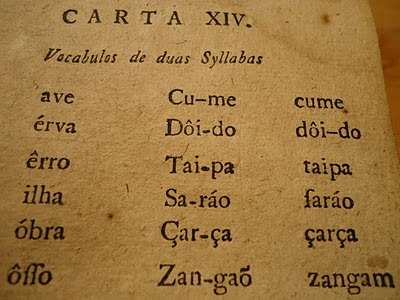 CARTA XIV.
Vocabulos de duas Syllabas
ave Cu-me cume
érva Dôi-do dôi-do
êrro Tai-pa taipa
ilha Sa-ráo ſaráo
óbra Çar-ça çarça
ôſſo Zan-gaõ zangam